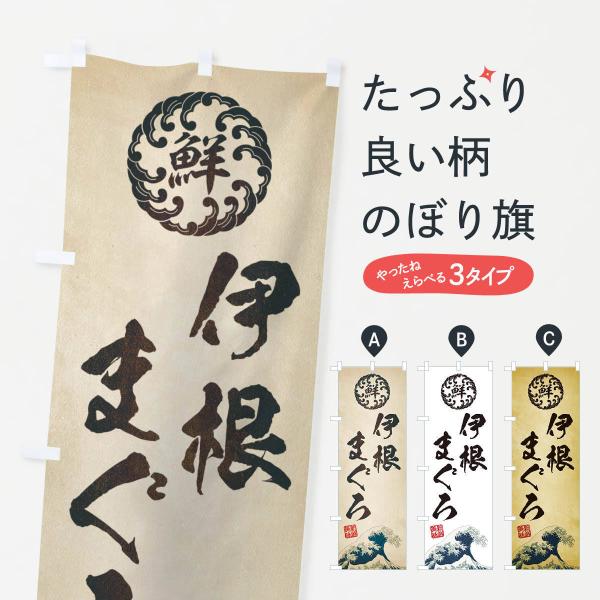 鮮
伊根
まぐろ
たっぷり
良い柄
のぼり旗
やったね
えらべる
3タイプ
A
B
C
鮮
伊根
まぐろ
鮮
伊根
まぐろ
鮮
伊根
まぐろ